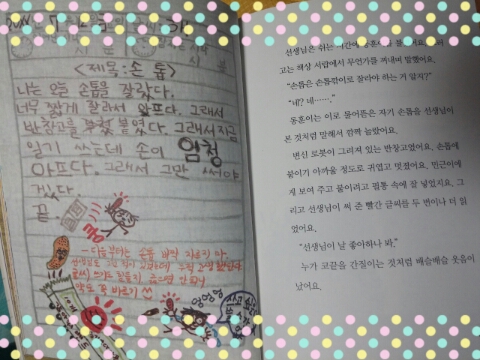 <제목:손톱>
나는 오늘 손톱을 잘랐다.
너무 짧게 잘라서 아프다. 그래서
반창고를 붙였다. 그래서 지금
일기 쓰는데 손이 엄청
아프다. 그래서 그만 써야
겠다.
끝
쿵
- 다음부터는 손톱 바짝 자르지 마.
약도 꼭 바르기
엉엉엉
선생님은 쉬는 시간에 동훈이를
고는 책상 서랍에서 무언가를 꺼내며 말했어요.
"손톱은 손톱깎이로 잘라야 하는 거 알지?"
"네? 네……."
동훈이는 이로 물어뜯은 자기 손톱을 선생님이
본 것처럼 말해서 깜짝 놀랐어요.
변신 로봇이 그려져 있는 반창고였어요. 손톱에
붙이기 아까울 정도로 귀엽고 멋졌어요. 민근이에
게 보여 주고 붙이려고 필통 속에 잘 넣었지요. 그
리고 선생님이 써 준 빨간 글씨를 두 번이나 더 읽
었어요.
"선생님이 날 좋아하나 봐."
누가 코끝을 간질이는 것처럼 배슬배슬 웃음이
났어요.